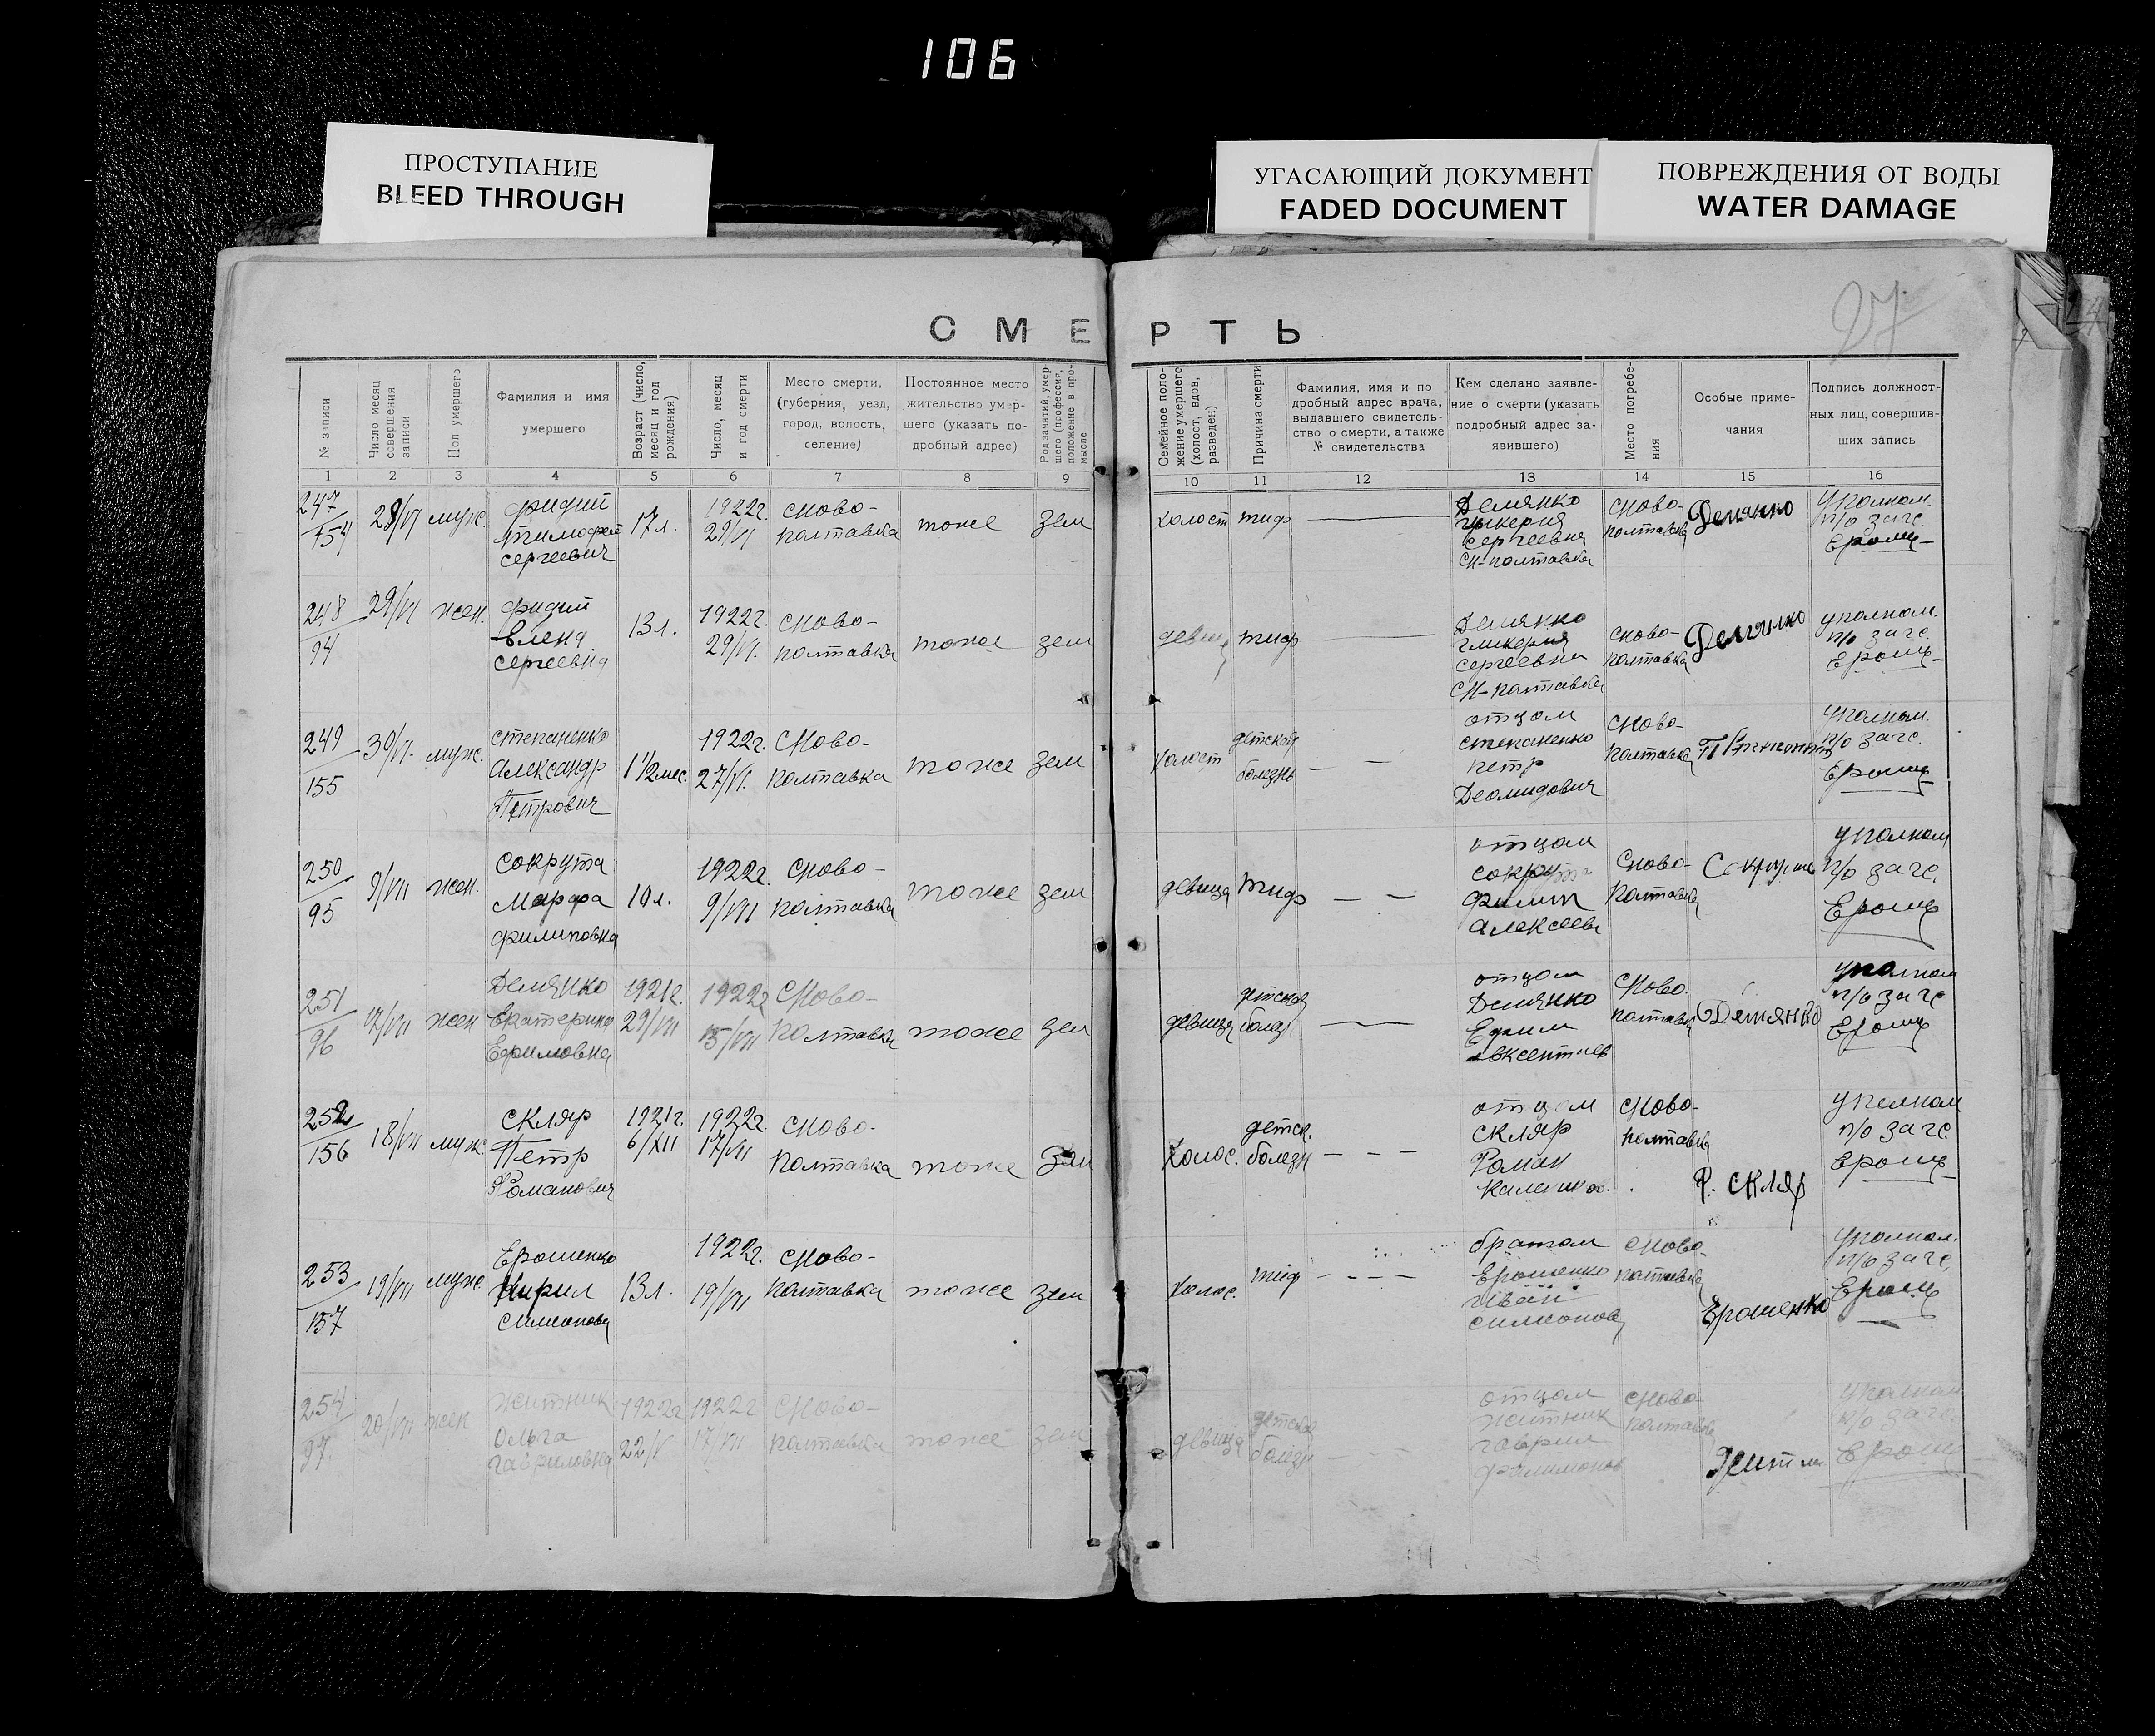 106
ПРОСТУПАНИЕ
BLEED THROUGH
УГАСАЮЩИЙ ДОКУМЕНТ
FADED DOCUMENT
ПОВРЕЖДЕНИЯ ОТ ВОДЫ
WATER DAMAGE
27
СМЕРТЬ
№ записи
Число месяц
совершения
записи
Пол умершего
Фамилия и имя
умершего
Возраст (число,
месяц и год
рождения)
Число, месяц
и год смерти
Место смерти,
(губерния, уезд,
город, волость,
селение)
Постоянное место
жительство умер-
шего (указать по-
дробный адрес)
Род занятий, умер-
шего (профессия,
положение в про-
мысле
Семейное поло-
жение умершего
(холост, вдов,
разведен)
Причина смерти
Фамилия, имя и по
дробный адрес врача,
выдавшего свидетель-
ство о смерти, а также
№ свидетельства
Кем сделано заявле-
ние о смерти (указать
подробный адрес за-
явившего)
Место погребе-
ния
Особые приме-
чания
Подпись должност-
ных лиц, совершив-
ших запись
1 2 3 4 5 6 7 8 9 10 11 12 13 14 15 16
247
154
28/VI
муж.
Фидий
Тимофей
Сергеевич
17 л.
1922г.
27/VI
Сново-
полтавка
тоже
зем
холост
тиф
Демянко
Гликерия
Сергеевна
СН-полтавка
Сново-
полтавка
Демянко
Уполном.
п/о загс.
Ерощ
248
94
29/VI
жен.
Фидий
Елена
Сергеевна
13 л.
1922г.
29/VI.
Сново-
полтавка
тоже
зем
девиц
тиф
Демянко
Гликерия
Сергеевна
СН-полтавка
Сново-
полтавка
Демянко
уполном.
п/о загс.
Ерощ
249
155
30/VI.
муж.
Степаненко
Александр
Петрович
1 1/2 мес.
1922г.
27/VI.
Сново-
полтавка
тоже
зем
холост
детской
болезнь
отцом
Степаненко
Петр
Деомидович
Сново-
полтавка
Уполном.
п/о загс.
Ерощ
250
95
9/VII
жен.
Сокрута
Марфа
Филиповна
10 л.
1922г.
9/VII
Сново-
полтавка
тоже
зем
девица
тиф
отцом
Сокрута
Филип
Алексеев
Сново-
полтавка
Сокрута
уполном
п/о загс.
Ерощ
251
96
17/VII
жен
Демянко
Екатерина
Ефимовна
1921г.
29/VII
1922г
15/VII
Сново-
полтавка
тоже
зем
девица
детская
болез
отцом
Демянко
Ефим
Авксентиев
Сново.
полтавка
Демянко
уполном
п/о загс
Ерощ
252
156
18/VII
муж.
Скляр
Петр
Романович
1921г.
6/XII
1922г.
17/VII
Сново-
полтавка
тоже
зем
холос.
детск.
болезн
отцом
Скляр
Роман
Сново-
полтавка
Р. Скляр
уполном
п/о загс.
Ерощ
253
157
19/VII
муж.
Ерошенко
Кирил
Симонов
13 л.
1922г.
19/VII
Сново-
полтавка
тоже
зем
холос.
тиф
братом
Ерошенко
Иван
Симонов
Сново-
полтавка
Ерошенко
Уполном.
п/о загс.
Ерощ
254
97
20/VII
жен
Житник
Ольга
Гавриловна
1922г
22/V
1922г
17/VII
Сново-
полтавка
тоже
зем
девица
детская
болезн
отцом
Житник
Гаврил
Филимонов
Сново-
полтавка
Житни
Уполном
п/о загс.
Ерощ